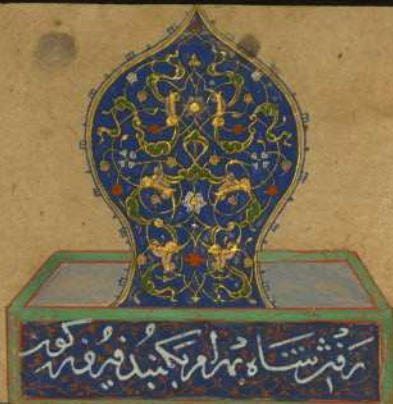 رفتن شاه بهرام بگنبد فیروزه گون